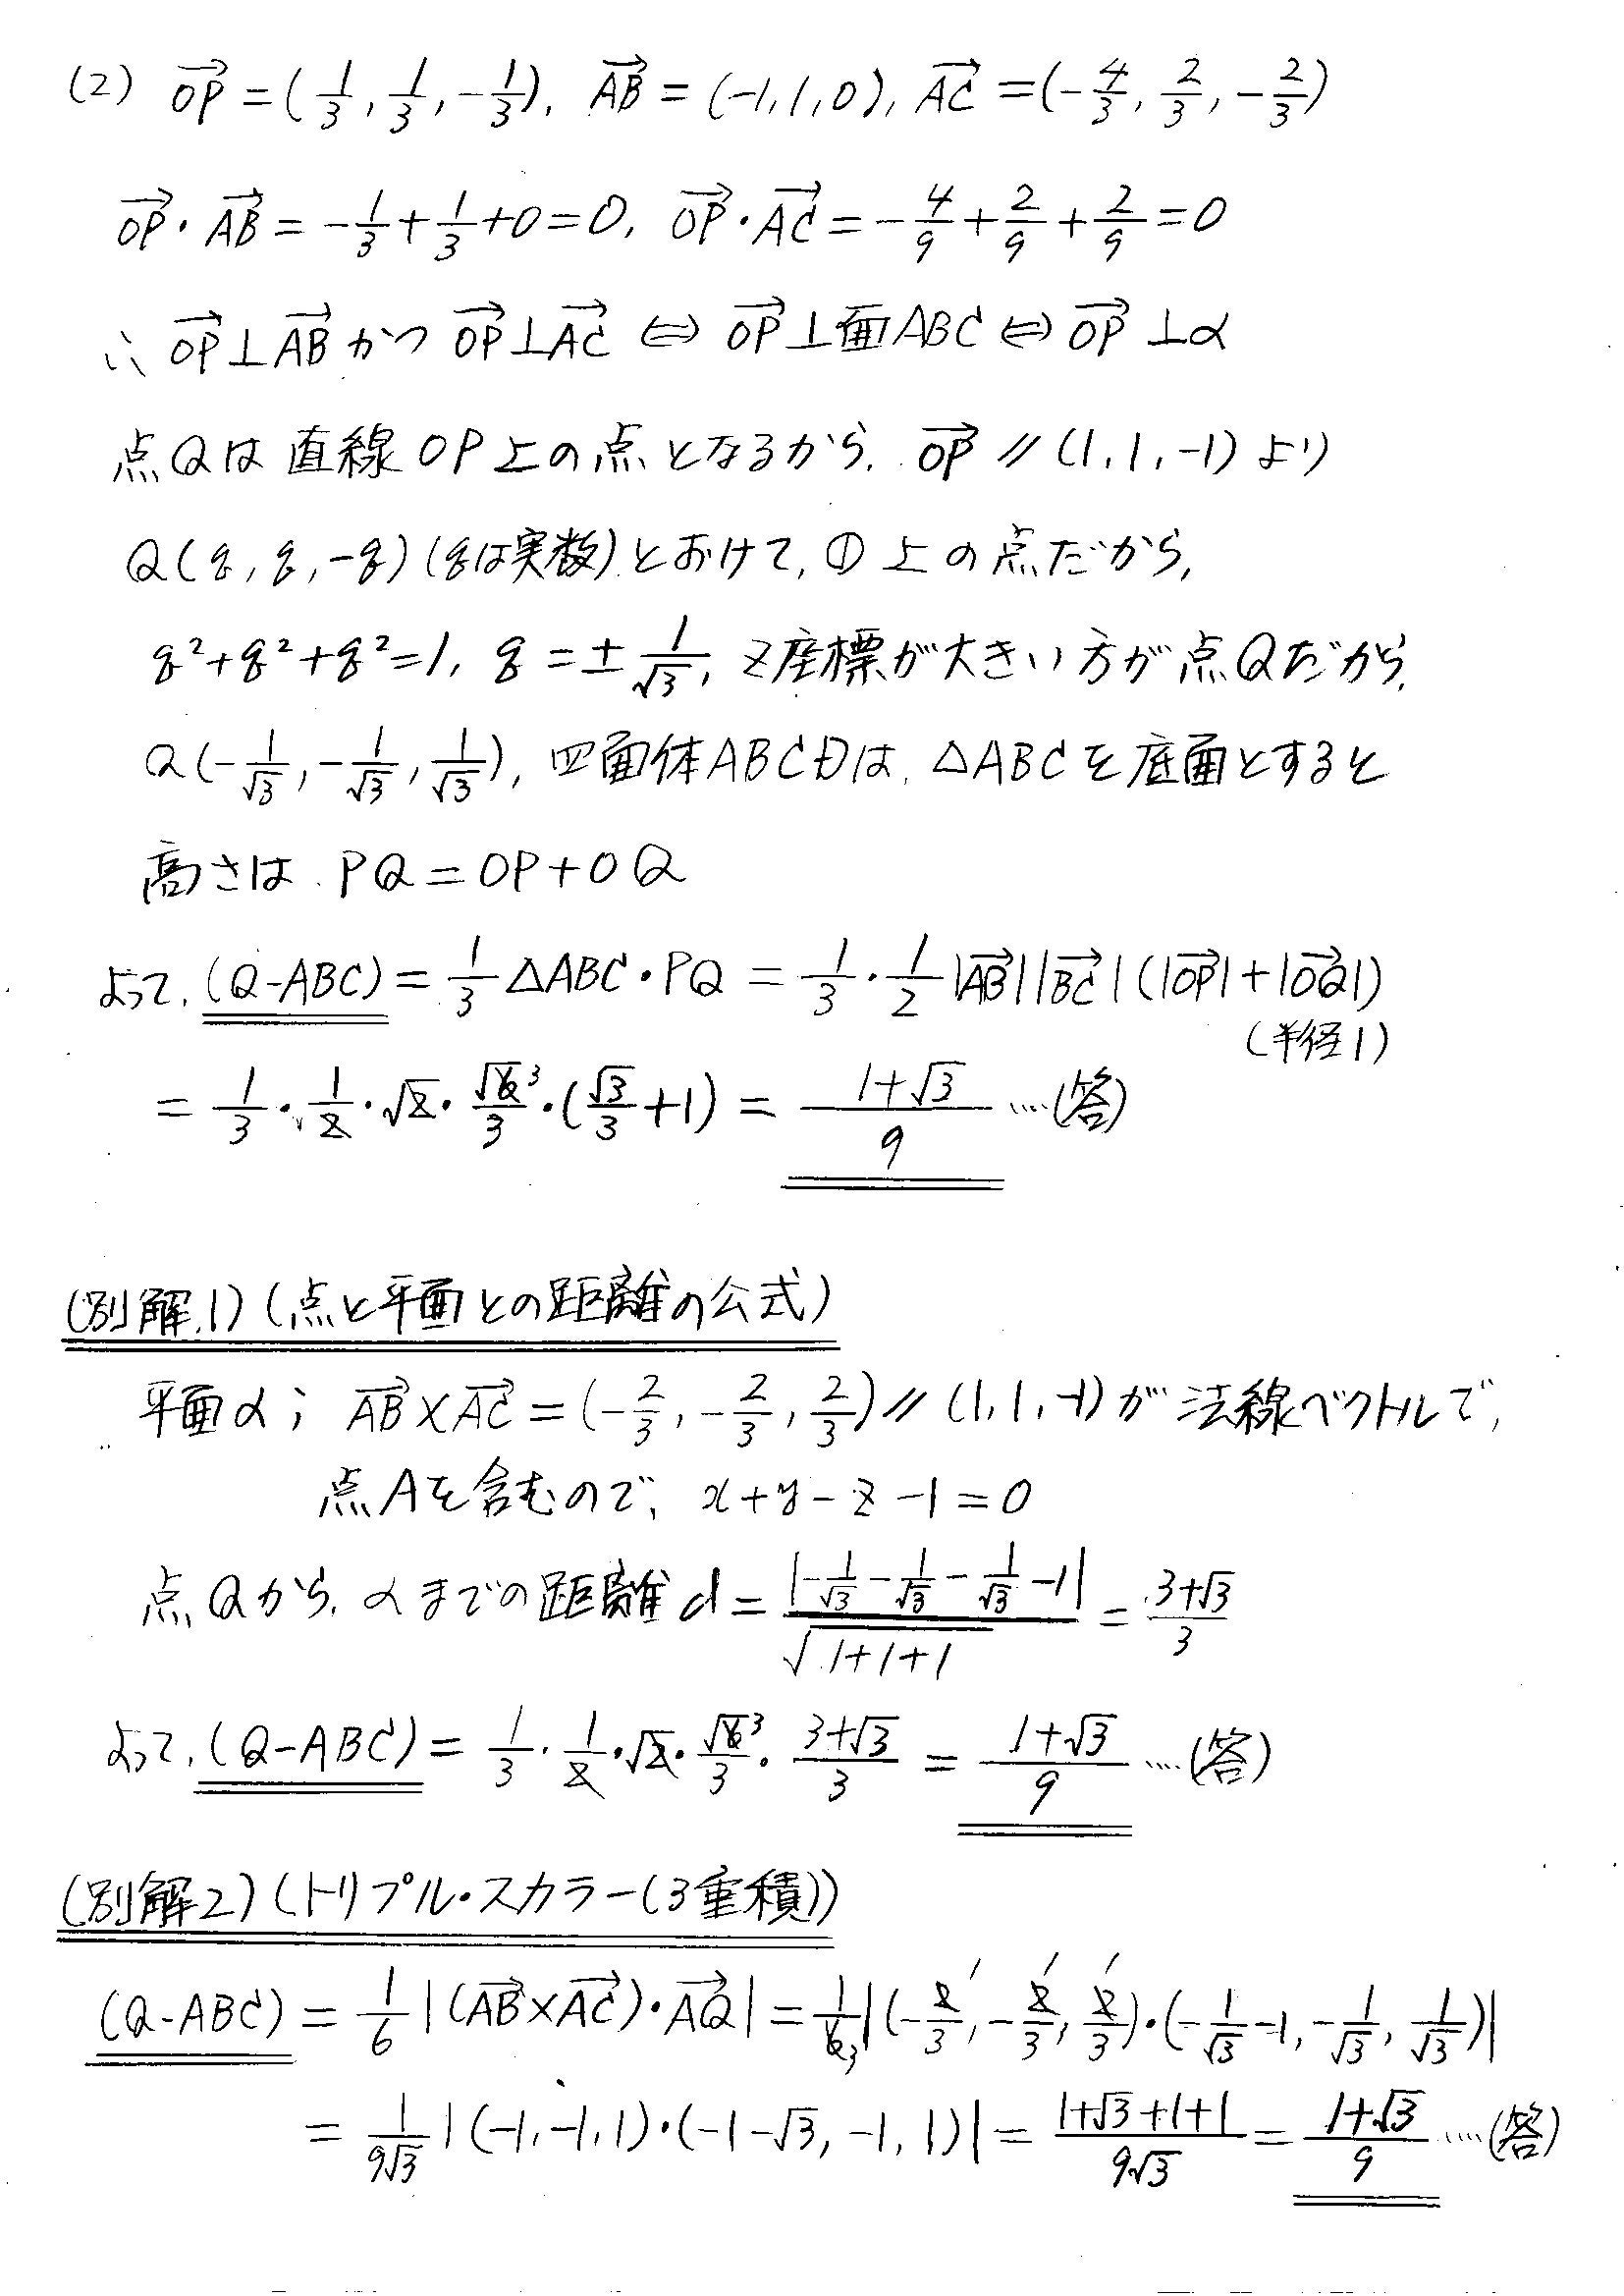 (2) $\overrightarrow{OP}=(\frac{1}{3},\frac{1}{3},-\frac{1}{3}),\ \overrightarrow{AB}=(-1,1,0),\ \overrightarrow{AC}=(-\frac{4}{3},\frac{2}{3},-\frac{2}{3})$
$\overrightarrow{OP}\cdot\overrightarrow{AB}=-\frac{1}{3}+\frac{1}{3}+0=0,\ \overrightarrow{OP}\cdot\overrightarrow{AC}=-\frac{4}{9}+\frac{2}{9}+\frac{2}{9}=0$
∴ $\overrightarrow{OP}\perp\overrightarrow{AB}$ かつ $\overrightarrow{OP}\perp\overrightarrow{AC}$ ⇔ $\overrightarrow{OP}$⊥面ABC ⇔ $\overrightarrow{OP}$⊥α
点Qは直線OP上の点となるから, $\overrightarrow{OP}$ // (1, 1, -1) より
Q(q, q, -q) (qは実数) とおけて, ① 上の点だから,
$q^2+q^2+q^2=1,\ q=\pm\frac{1}{\sqrt{3}}$, z座標が大きい方が点Qだから,
$Q(-\frac{1}{\sqrt{3}},-\frac{1}{\sqrt{3}},\frac{1}{\sqrt{3}})$, 四面体ABCDは, △ABCを底面とすると
高さは PQ=OP+OQ
よって, (Q-ABC) $=\frac{1}{3}$△ABC・PQ $=\frac{1}{3}\cdot\frac{1}{2}|\overrightarrow{AB}||\overrightarrow{BC}|(|\overrightarrow{OP}|+|\overrightarrow{OQ}|)$
(半径1)
$=\frac{1}{3}\cdot\frac{1}{2}\cdot\sqrt{2}\cdot\frac{\sqrt{6}}{3}\cdot(\frac{\sqrt{3}}{3}+1)=\frac{1+\sqrt{3}}{9}$ ‥‥(答)
(別解1) (点と平面との距離の公式)
平面α ; $\overrightarrow{AB}\times\overrightarrow{AC}=(-\frac{2}{3},-\frac{2}{3},\frac{2}{3})$ // (1, 1, -1) が法線ベクトルで,
点Aを含むので, x+y-z-1=0
点Qから, αまでの距離 $d=\frac{|-\frac{1}{\sqrt{3}}-\frac{1}{\sqrt{3}}-\frac{1}{\sqrt{3}}-1|}{\sqrt{1+1+1}}=\frac{3+\sqrt{3}}{3}$
よって, (Q-ABC) $=\frac{1}{3}\cdot\frac{1}{2}\cdot\sqrt{2}\cdot\frac{\sqrt{6}}{3}\cdot\frac{3+\sqrt{3}}{3}=\frac{1+\sqrt{3}}{9}$ ‥‥(答)
(別解2) (トリプル・スカラー(3重積))
(Q-ABC) $=\frac{1}{6}|(\overrightarrow{AB}\times\overrightarrow{AC})\cdot\overrightarrow{AQ}|=\frac{1}{6}|(-\frac{2}{3},-\frac{2}{3},\frac{2}{3})\cdot(-\frac{1}{\sqrt{3}}-1,-\frac{1}{\sqrt{3}},\frac{1}{\sqrt{3}})|$
$=\frac{1}{9\sqrt{3}}|(-1,-1,1)\cdot(-1-\sqrt{3},-1,1)|=\frac{1+\sqrt{3}+1+1}{9\sqrt{3}}=\frac{1+\sqrt{3}}{9}$ ‥‥(答)